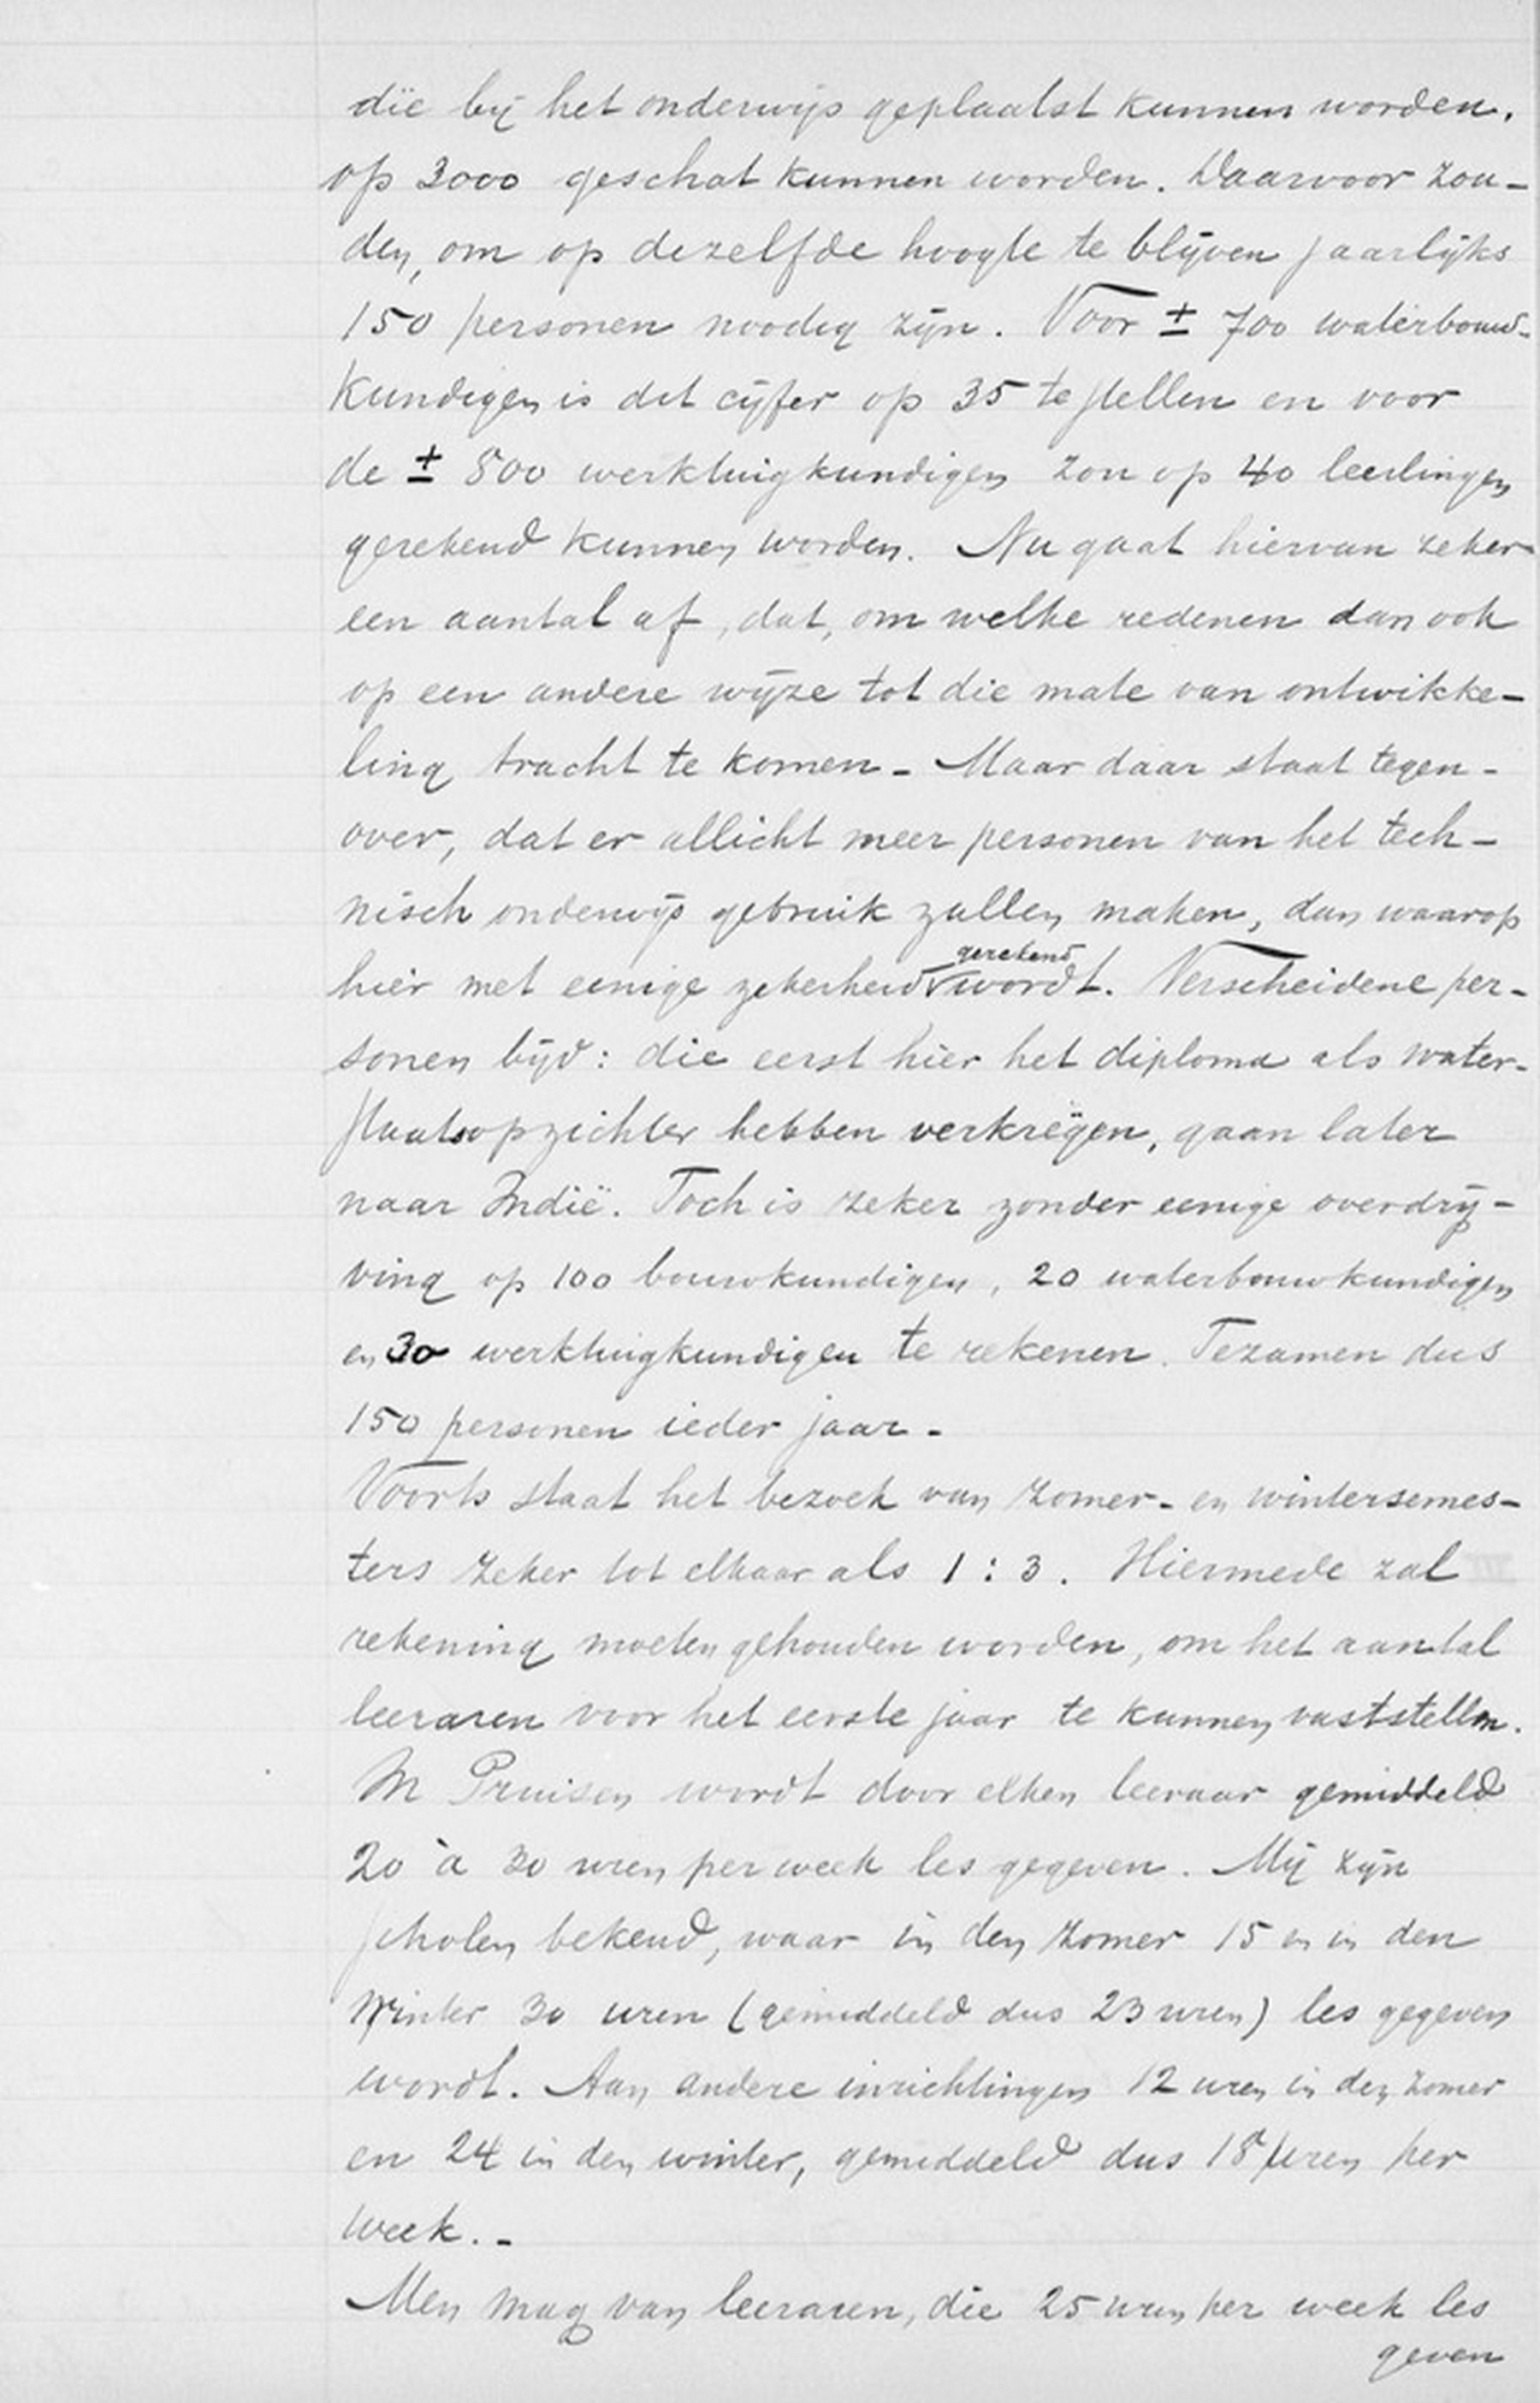 die bij het onderwijs geplaatst kunnen worden,
op 3000 geschat kunnen worden. Daarvoor zou-
den, om op dezelfde hoogte te blijven jaarlijks
150 personen noodig zijn. Voor ± 700 waterbouw-
kundigen is dit cijfer op 35 te stellen en voor
de ± 800 werktuigkundigen zou op 40 leerlingen
gerekend kunnen worden. Nu gaat hiervan zeker
een aantal af, dat, om welke redenen dan ook
op een andere wijze tot die mate van ontwikke-
ling tracht te komen - Maar daar staat tegen-
over, dat er allicht meer personen van het tech-
nisch onderwijs gebruik zullen maken, dan waarop
hier met eenige zekerheid gerekend wordt. Verscheidene per-
sonen bijv: die eerst hier het diploma als water-
staatsopzichter hebben verkregen, gaan later
naar Indië. Toch is zeker zonder eenige overdrij-
ving op 100 bouwkundigen, 20 waterbouwkundigen
en 30 werktuigkundigen te rekenen. Tezamen dus
150 personen ieder jaar -
Voorts staat het bezoek van zomer- en wintersemes-
ters zeker tot elkaar als 1 : 3. Hiermede zal
rekening moeten gehouden worden, om het aantal
leeraren voor het eerste jaar te kunnen vaststellen.
In Pruisen wordt door elken leeraar gemiddeld
20 à 30 uren per week les gegeven. Mij zijn
scholen bekend, waar in den zomer 15 en in den
winter 30 uren (gemiddeld dus 23 uren) les gegeven
wordt. Aan andere inrichtingen 12 uren in den zomer
en 24 in den winter, gemiddeld dus 18 uren per
week. -
Men mag van leeraren, die 25 uren per week les
geven